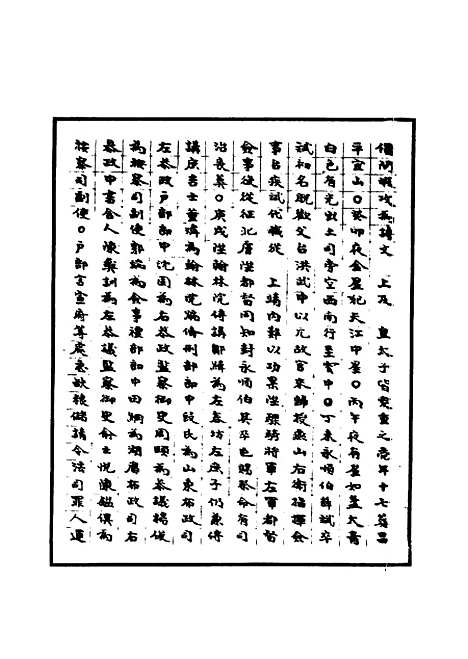 備閒暇攻為詩文　上及　皇太子皆愛重之卒年十七葬昌
平宜山○癸卯夜金星犯天江中星○丙午夜有星如盞大青
白色有光出土司旁空西南行至雲中○丁未永順伯薛斌卒
斌初名脫歡父台洪武中以元故官來歸授燕山右衛指揮僉
事台疾斌代職從　上靖內難以功累陞驃騎將軍左軍都督
僉事後從征北虜陞都督同知封永順伯其卒也賜祭命有司
治喪葬○庚戌陞翰林院侍講鄒緝為左春坊左庶子仍兼侍
講庶吉士董璘為翰林院編修刑部郎中段民為山東布政司
左參政戶部郎中沈固為右參政監察御史周頤為參議楊俊
為按察司副使郭瑞為僉事禮部郎中田炯為湖廣布政司右
參政中書舍人陳彝訓為左參議監察御史俞士悅陳鎰俱為
按察司副使○戶部言宣府等處急缺糧儲請令法司罪人運